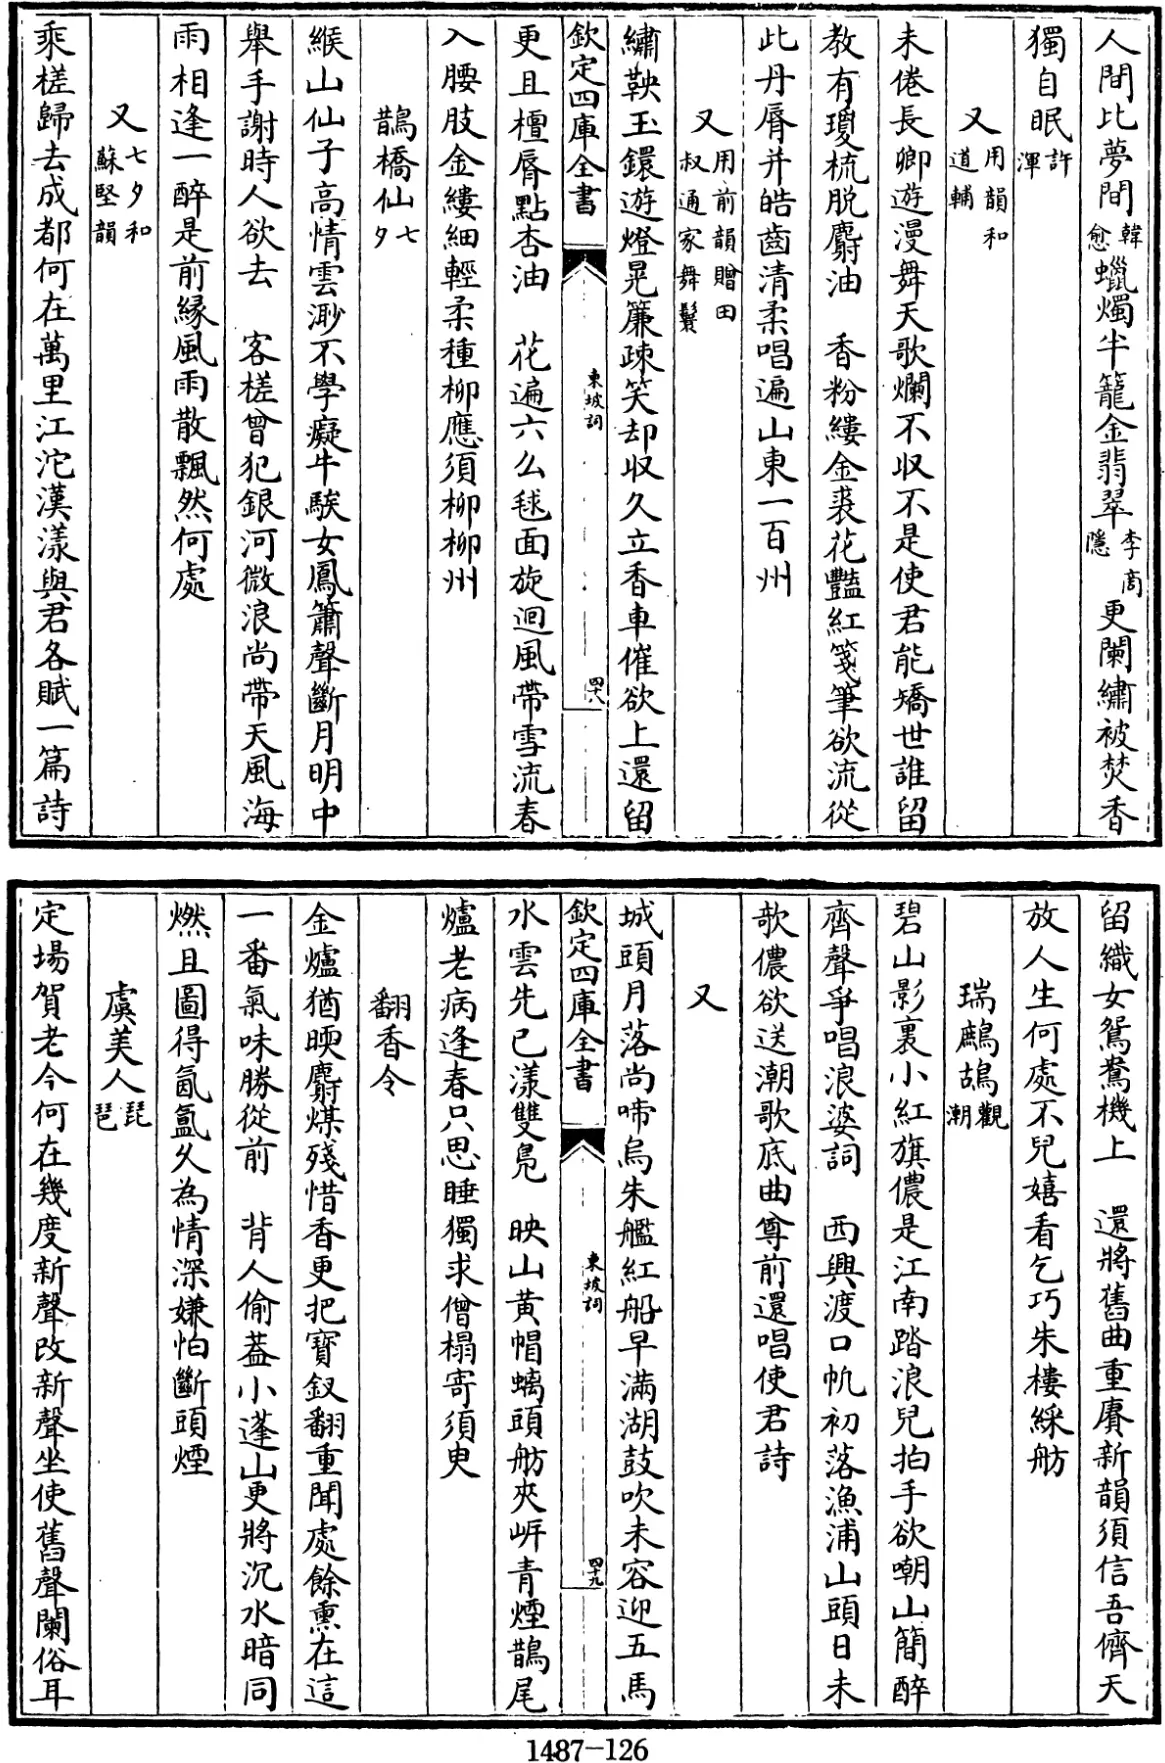 人間比夢間韓愈蠟燭半籠金翡翠李商隱更闌繡被焚香
獨自眠許渾
又用韻和道輔
未倦長卿遊漫舞夭歌爛不收不是使君能矯世誰留
教有瓊梳脫麝油　香粉縷金裘花豔紅箋筆欲流從
此丹脣并皓齒清柔唱遍山東一百州
又用前韻贈田叔通家舞鬟
繡鞅玉鐶遊燈晃簾疎笑却收久立香車催欲上還留
欽定四庫全書　東坡詞　四十八
更且檀脣點杏油　花遍六么毬面旋迴風帶雪流春
入腰肢金縷細輕柔種柳應須柳柳州
鵲橋仙七夕
緱山仙子高情雲渺不學癡牛騃女鳳簫聲斷月明中
舉手謝時人欲去　客槎曾犯銀河微浪尚帶天風海
雨相逢一醉是前緣風雨散飄然何處
又七夕和蘇堅韻
乘槎歸去成都何在萬里江沱漢漾與君各賦一篇詩
留織女鴛鴦機上　還將舊曲重賡新韻須信吾儕天
放人生何處不兒嬉看乞巧朱樓綵舫
瑞鷓鴣觀潮
碧山影裏小紅旗儂是江南踏浪兒拍手欲嘲山簡醉
齊聲爭唱浪婆詞　西興渡口帆初落漁浦山頭日未
歌儂欲送潮歌底曲尊前還唱使君詩
又
城頭月落尚啼烏朱艦紅船早滿湖鼓吹未容迎五馬
欽定四庫全書　東坡詞　四十九
水雲先已漾雙鳧　映山黃帽螭頭舫夾岍青煙鵲尾
爐老病逢春只思睡獨求僧榻寄須臾
翻香令
金爐猶暎麝煤殘惜香更把寶釵翻重聞處餘熏在這
一番氣味勝從前　背人偷蓋小蓬山更將沉水暗同
燃且圖得氤氳久為情深嫌怕斷頭煙
虞美人琵琶
定場賀老今何在幾度新聲改新聲坐使舊聲闌俗耳
1487—126